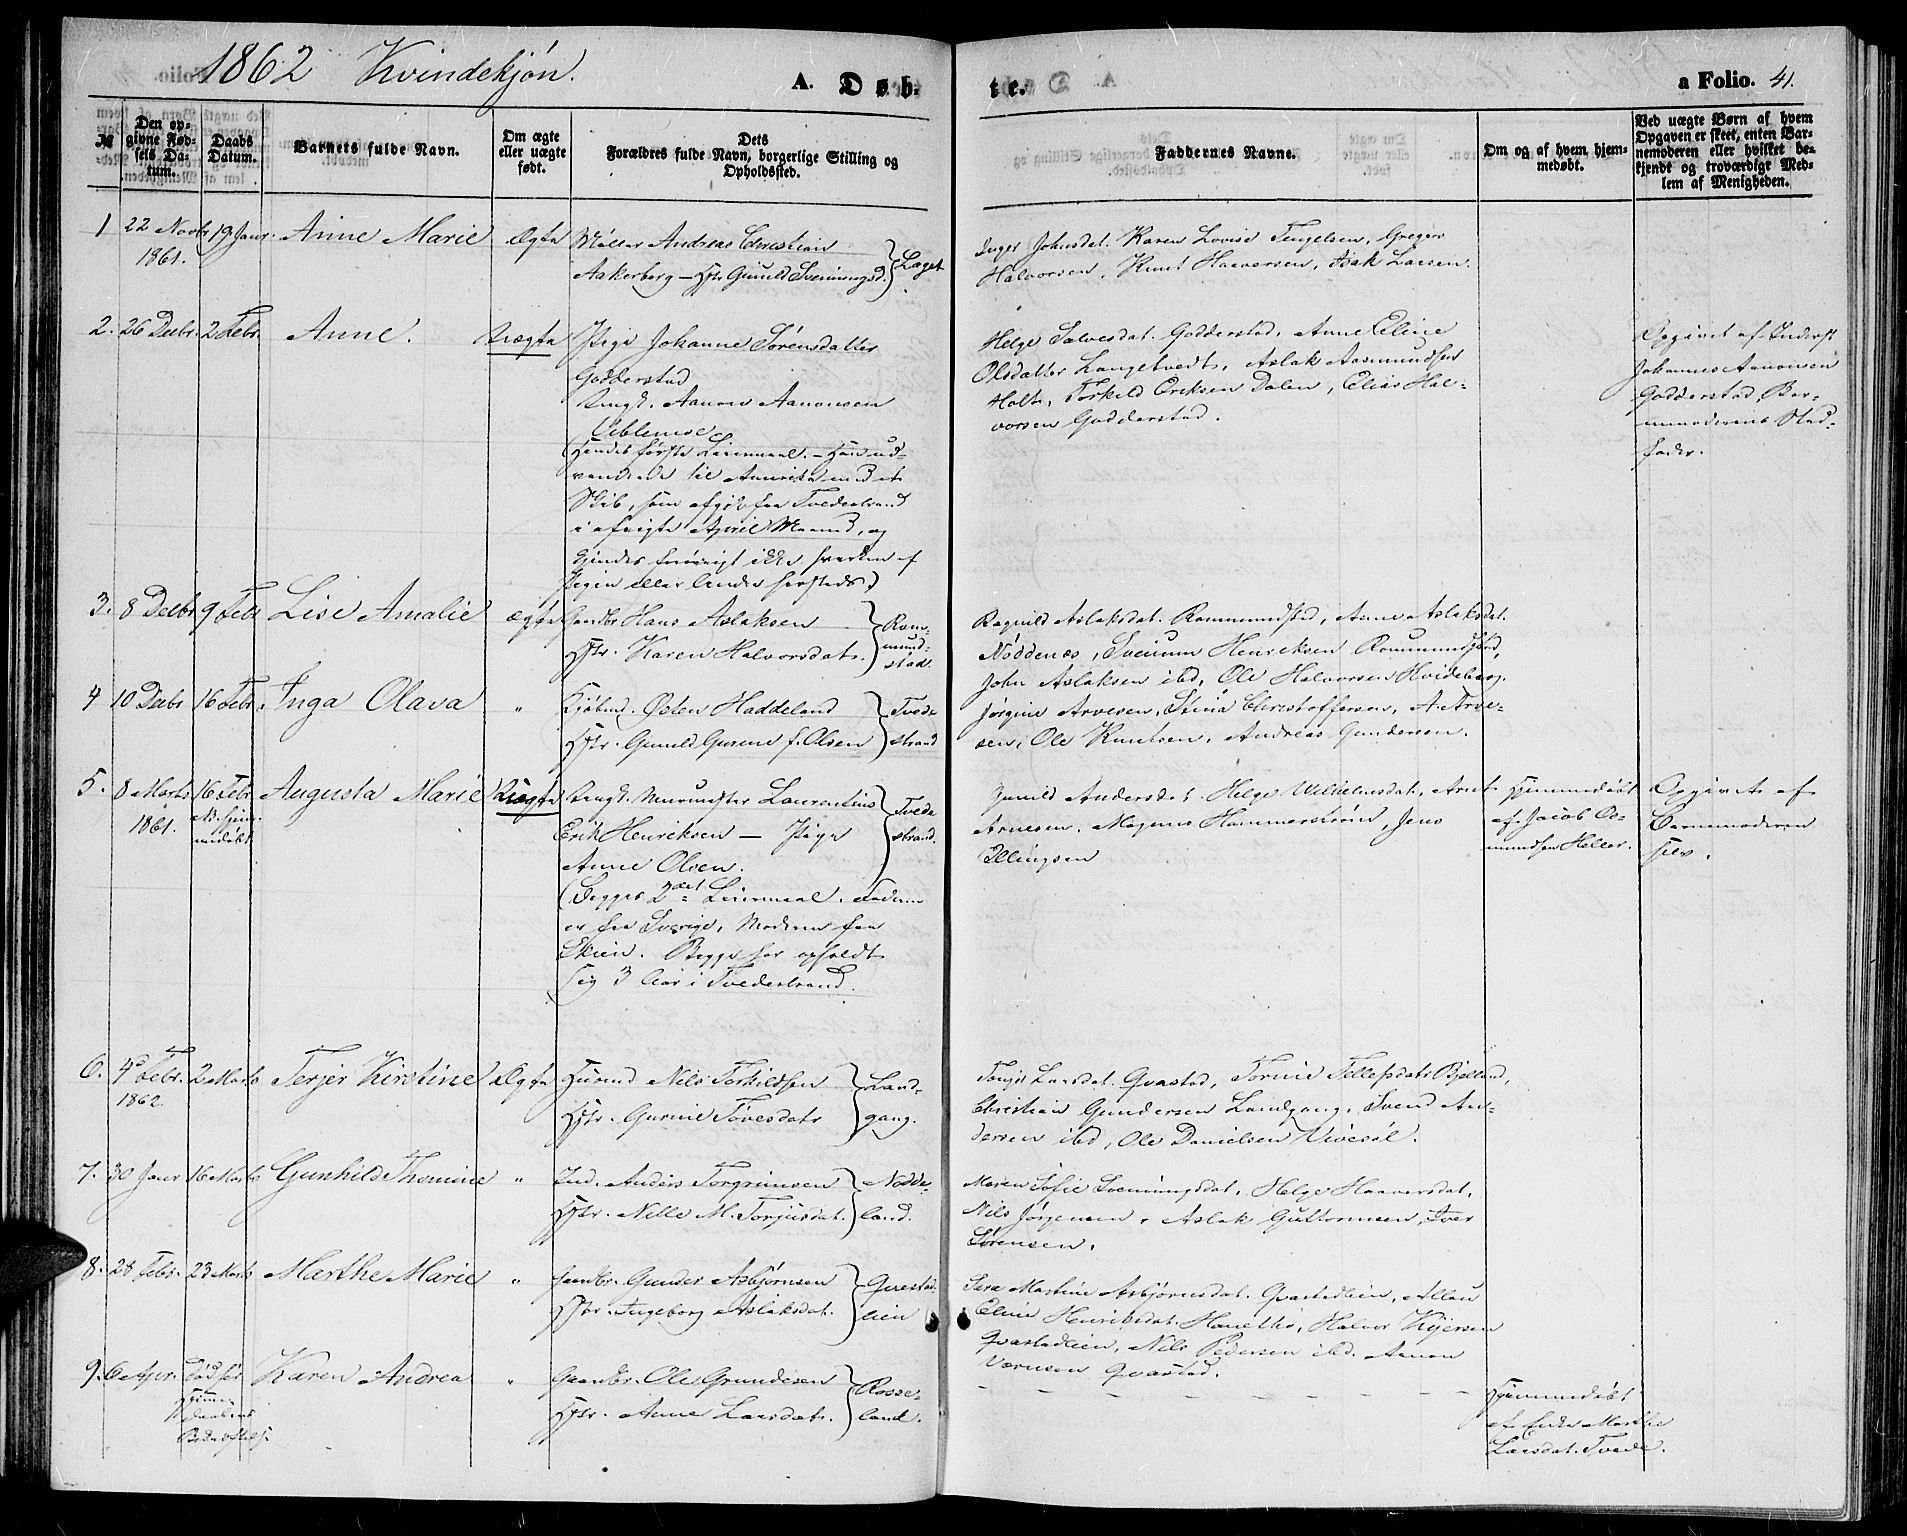 1862 Kvindekjön.
A. Døb-
te.
a Folio. 41.
№
Den op-
givne Fød-
sels Da-
tum.
Daabs
Datum.
Barnets fulde Navn.
Om ægte
eller uægte
født.
Dets
Forældres fulde Navn, borgerlige Stilling og
Opholdssted.
Faddernes Navne.
Om og af hvem hjem-
medøbt.
Ved uægte Børn af hvem
Opgaven er skeet, enten Bar-
nemoderen eller hvilket be-
kjendt og troværdigt Med-
lem af Menigheden.
1 22 Novbr 1861. 19 Januar. Anne Marie Ægte
Møller Andreas Christian
Aakerberg – Hstr Gunild Sveningsd. Laget
Inger Johnsdat. Karen Lovise Tengelsen, Greger
Halvorsen, Knut Haaversen, Isak Larsen.
2. 26 Decbr. 2 Febr. Anne. Uægte
Pige Johanne Sörensdatter
Godderstad
Ungk. Aanon Aanonsen
Ueblemse
(Hendes første Leiermaal. – Han ud-
vandrede til Amerika med et
Skib, som afgik fra Tvedestrand
i afvigte April Maaned, og
kjendes forøvrigt ikke hverken af
Pigen eller andre hersteds)
Helge Salvesdat. Godderstad, Anne Eline
Olsdatter Langetvedt, Aslak Aasmundsen
Holt, Torkild Ereksen Dalen, Elias Hal-
vorsen Godderstad.
Opgivet af Inderst
Johannes Aanonsen
Godderstad, Bar-
nemoderens Sted-
fader.
3. 8 Decbr 9 Febr Lise Amalie ægte
Gaardbr Hans Aslaksen
Hstr. Karen Halvorsdatr.
Rom-
mund-
stad.
Ragnild Aslaksdat. Rommundstad, Anne Aslaksdat.
Nöddenæs, Svenum Henreksen Rommundstad,
John Aslaksen ibd, Ole Halvorsen Hvideberg.
4 10 Decbr 16 Febr. Inga Olava "
Kjøbmd. Østen Haddeland
Hstr. Gunild Gurine f. Olsen
Tvede
strand
Jörgine Arvesen, Stina Christoffersen, A. Arve-
sen, Ole Knutsen, Andreas Gundersen.
5. 8 Marts 1861. 16 Febr
Augusta Marie Uægte
Ungk. Murmester Laurentius
Erik Henriksen – Pige
Anne Olsen.
Tvede
strand.
(Begges 2det Leiermaal. Faderen
er fra Sverige, Moderen fra
Skien. Begge har opholdt
sig 3 Aar i Tvedestrand.
Gunild Andersdat. Helge Wilhelmsdat, Arnt
Arnesen, Magnus Hammerström, Jens
Ellingsen
Hjemmedøbt
af Jacob Os-
mundsen Heller.
Opgivet af
Barnemoderen
selv.
6. 4 Febr. 1862. 2 Marts Terjer Kirstine Ægte
Huusmd Nils Torkildsen
Hstr. Gurine Tovesdatr
Land-
gang.
Larsdat. Qvastad, Tornie Tellefsdatr Bjelland,
Christian Gundersen Landgang, Svend An-
dersen ibd, Ole Danielsen Vivesöl.
7. 30 Janr 16 Marts Gunhild Thomine "
Ind. Anders Torgrimsen
Hstr. Nille M. Torjusdat.
Nodde-
land.
Maren Sofie Sveinungsdat, Helge Haaversdat,
Nils Jörgensen, Aslak Guttormsen, Iver
Sörensen.
8. 28 Febr. 23 Marts Marthe Marie "
Gaardbr. Gunder Asbjörnsen
Hstr. Ingeborg Aslaksdat.
Qvestad-
lien
Sara Martine Asbjörnsdat. Qvastadlien, Allau
Eline Henriksdat. Haneths, Halvor Kjersen
Qvastadlien, Nils Pedersen ibd. Aanon
Værnsen Qvastad.
9. 6 Apr. Død før
Hjemme-
daabens
Bekræftelse
Karen Andrea "
Gaardbr. Ole Grundesen
Hstr. Anne Larsdatr.
Rosse-
land.
Hjemmedøbt
af Enke Marthe
Larsdat. Tvede.